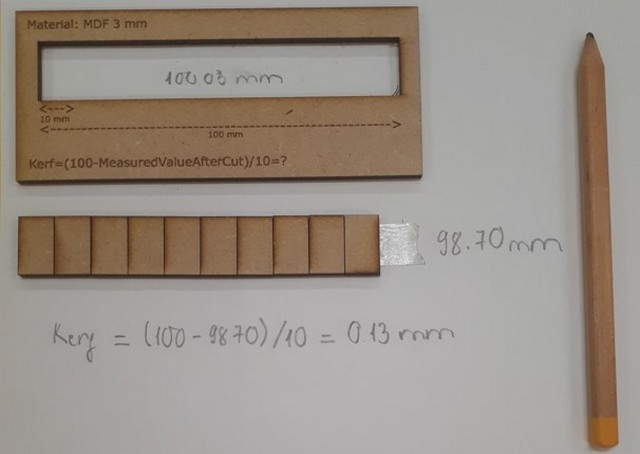 Material: MDF 3 mm
100 03 mm
10 mm
100 mm
Kerf=(100-MeasuredValueAfterCut)/10=?
98.70 mm
Kerf = (100-9870)/10 = 0.13 mm